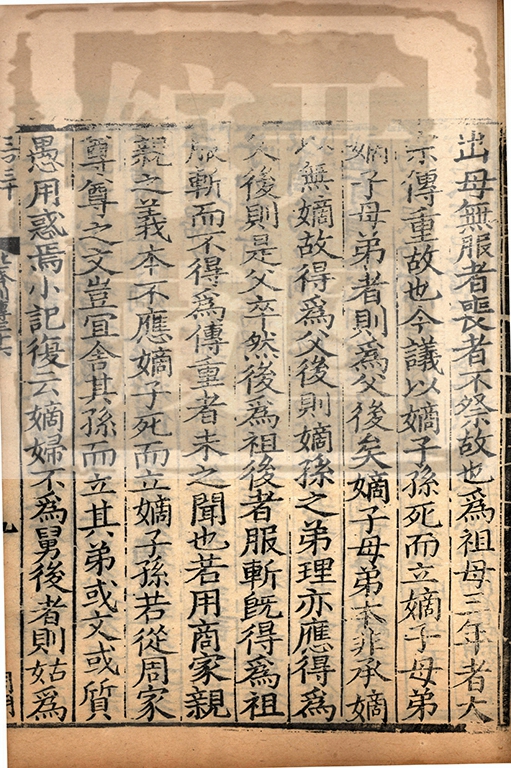 出母無服者喪者不祭故也爲祖母三年者大
宗傳重故也今議以嫡子孫死而立嫡子母弟
嫡子母弟者則爲父後矣嫡子母弟本非承嫡
以無嫡故得爲父後則嫡孫之弟理亦應得爲
父後則是父卒然後爲祖後者服斬旣得爲祖
服斬而不得爲傳重者未之聞也若用商家親
親之義本不應嫡子死而立嫡子孫若從周家
尊尊之文豈宜舍其孫而立其弟或文或質
愚用惑焉小記復云嫡婦不爲舅後者則姑爲